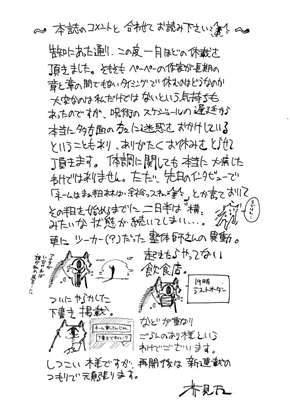 ～本誌のコメントと合わせてお読み下さい～
告知にあった通り、この度一月ほどの休載を
頂きました。そもそもペーペーの作家が長期の
章と章の間でもないタイミングで休むのはどうなのか
大変なのは私だけではないという気持ちも
あったのですが、呪術のスケジュールの遅さから
本当に多方面の方に迷惑をおかけしている
ということもあり、ありがたくお休みさせて
頂きます。体調に関しても本当に大病した
わけではありません。ただ、先日のインタビューで
とか言ており
その相を始めるまでに二日半は横
みたいな状態が続いてしまい…。
更にツーカー(?)だった整体師さんの異動。
起きたらやってない
飲食店。
19時
ラストオーダー
ついにやらかした
下書き掲載。
などが重なり
ごらんのあり様という
わけでございます。
しつこい様ですが、再開後は新連載の
つもりで頑張ります。